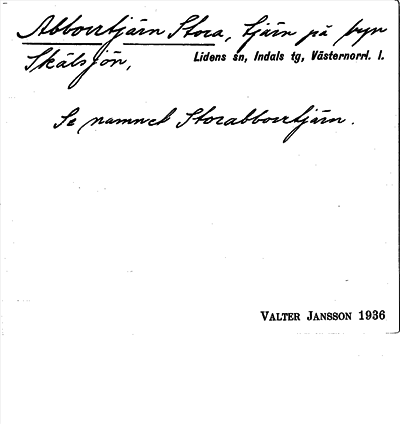 Abborrtjärn Stora, tjärn på byn
Skälsjön, Lidens sn, Indals tg, Västernorrl. l.
Se namnet Storabborrtjärn.
VALTER JANSSON 1936